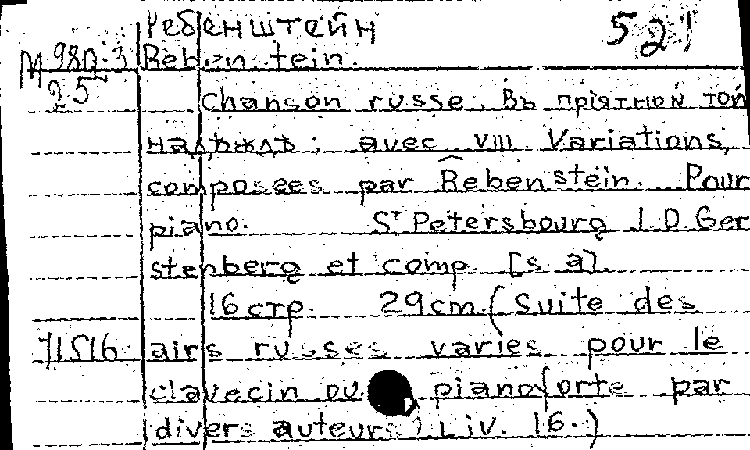 Ребенштейн 521
М 980.3 Rebenstein.
25
Chanson russe. Въ прiятной той
надѣждѣ: avec VIII Variations,
composees par Rebenstein. Pour
piano. St Petersbourg I. D. Ger
stenberg et comp. [s. a].
16 стр. 29cm. (Suite des
71516 airs russes varies pour le
clavecin ou pianoforte par
divers auteurs) Liv. 16.)